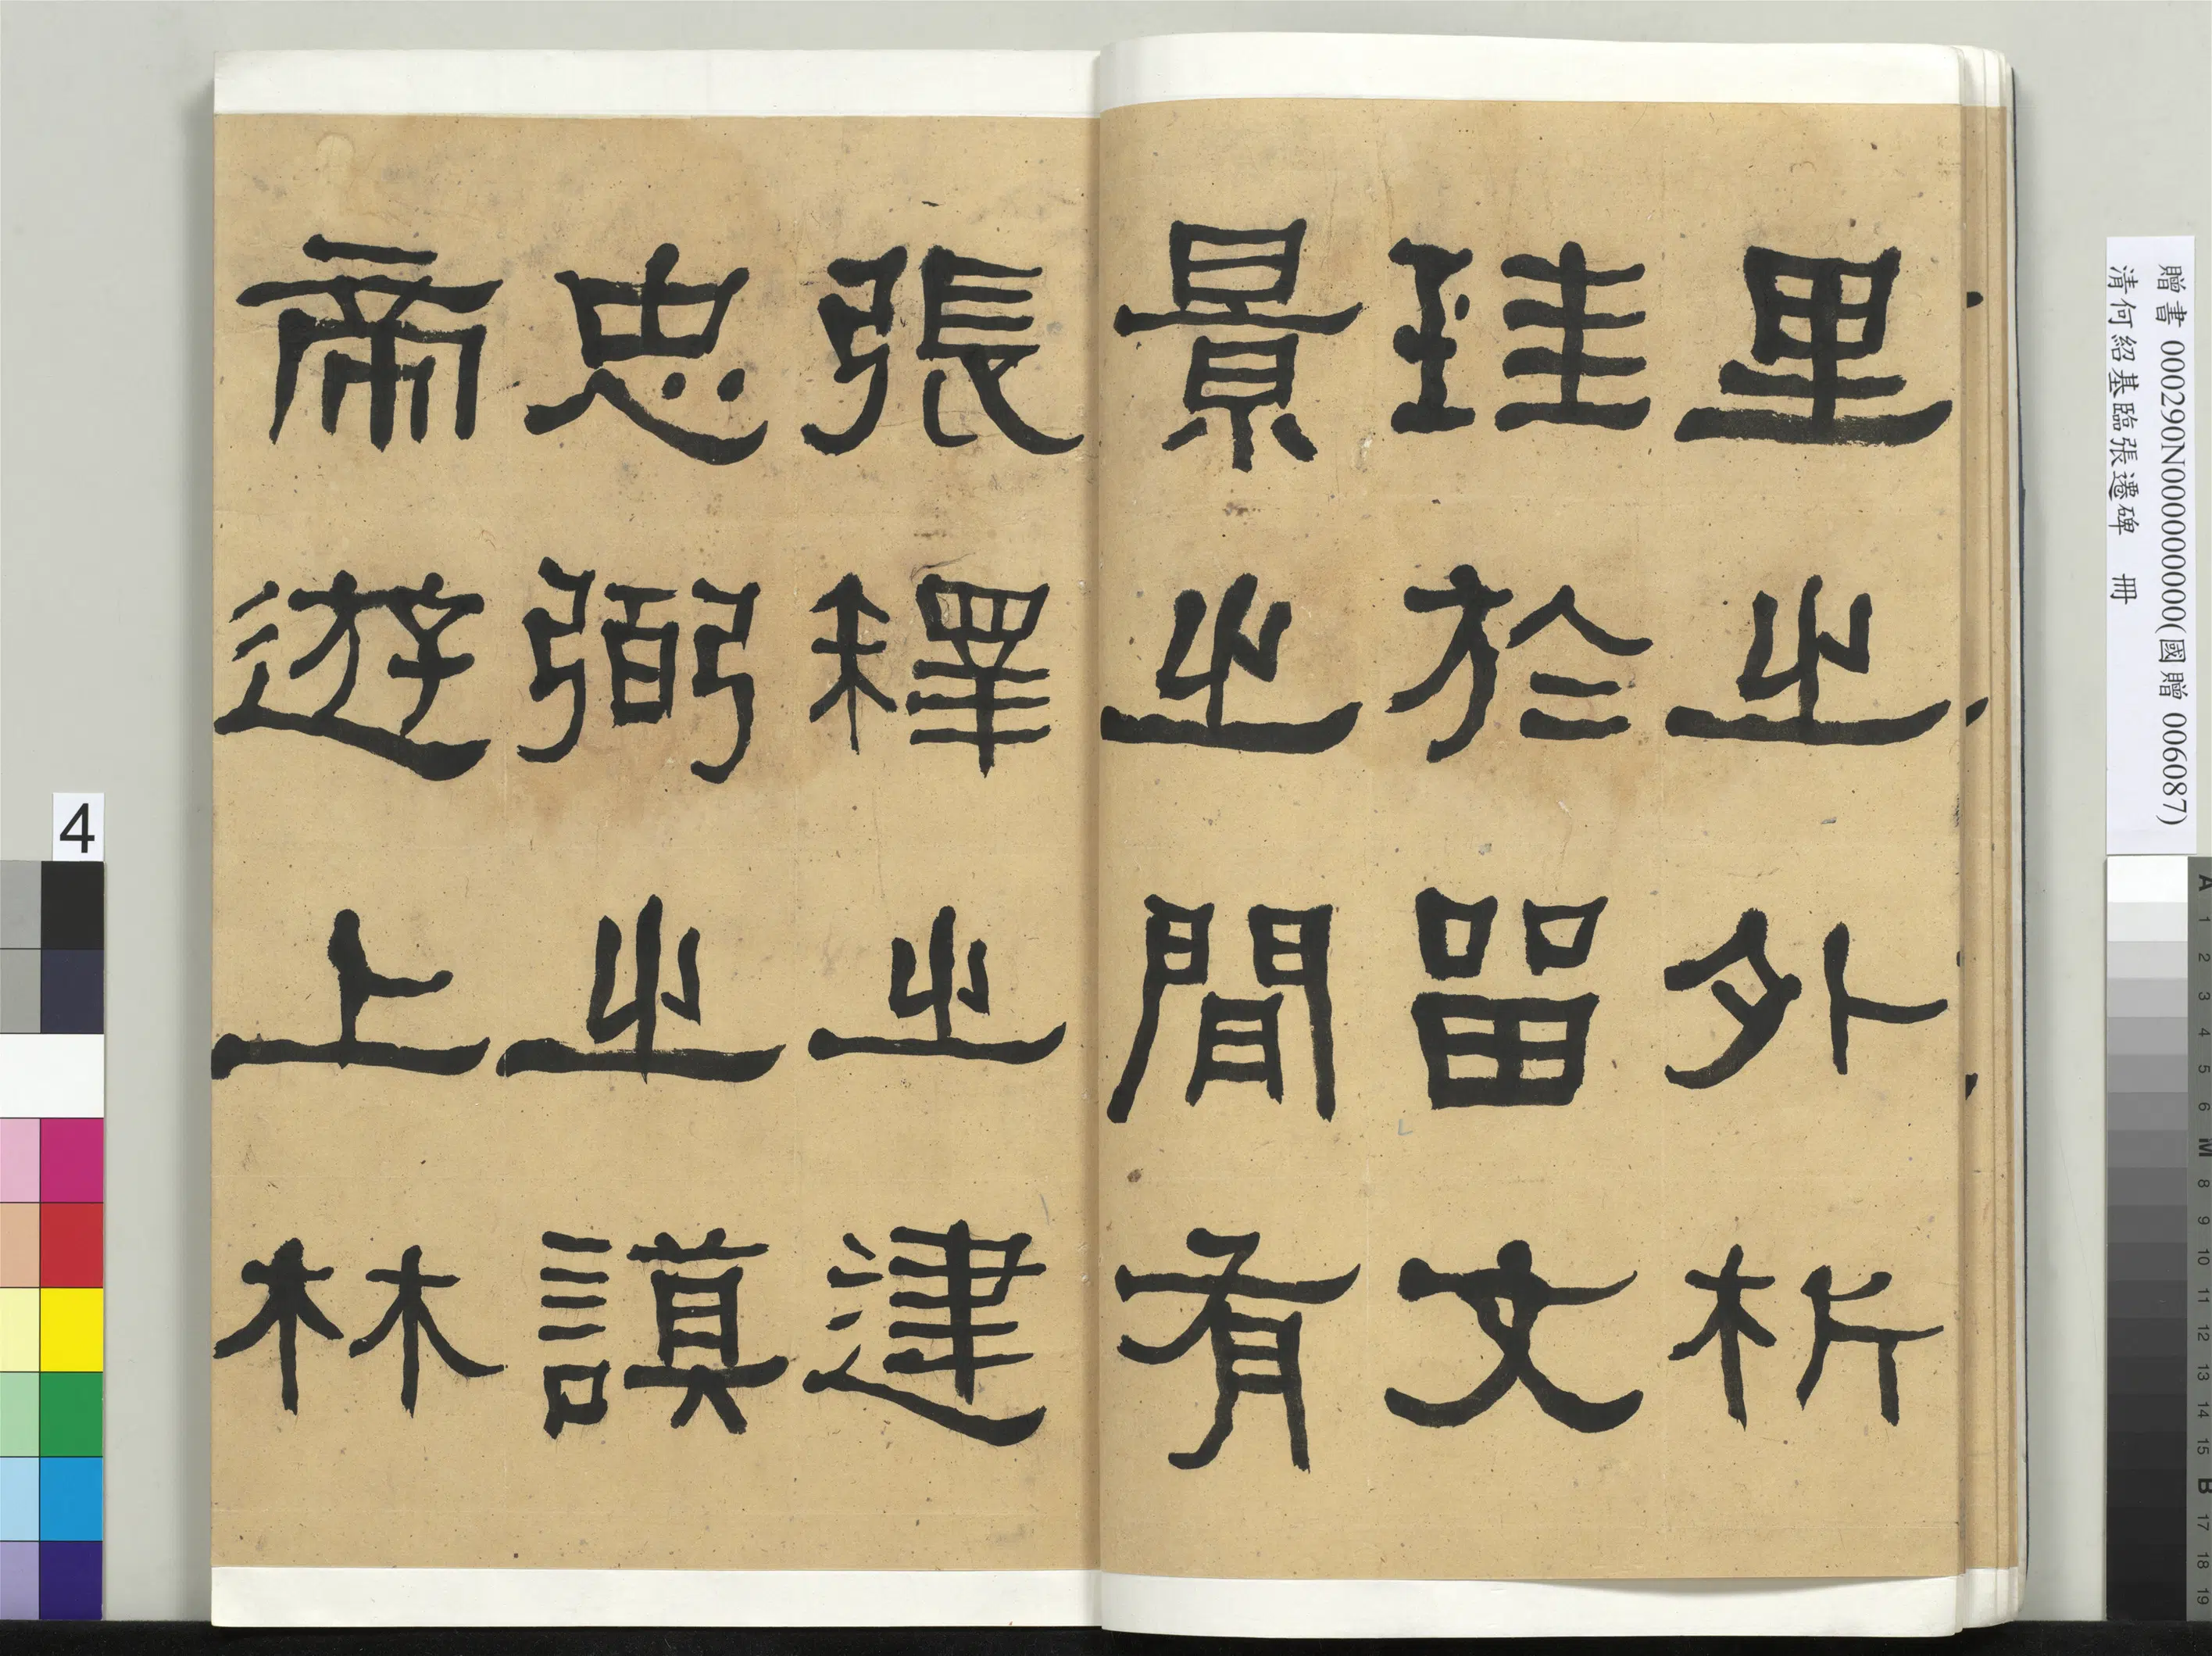 里之外析
珪於留文
景之間有
張釋之建
忠弼之謨
帝遊上林
贈書 000290N000000000(國贈 006087)
清何紹基臨張遷碑 冊
4
A 1 2 3 4 5 6 M 8 9 10 11 12 13 14 15 B 17 18 19